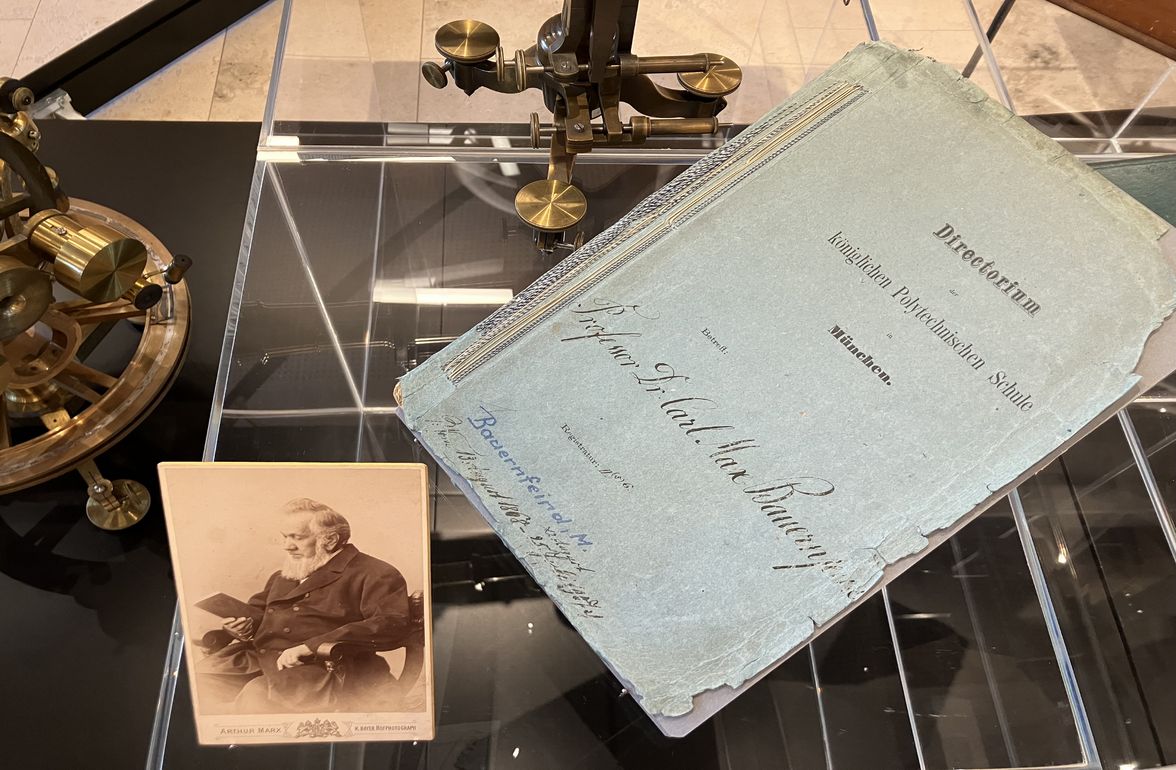 Directorium
der
königlichen Polytechnischen Schule
in
München.
Betreff:
Professor Dr Carl Max Bauernfeind
Registratur:
Bauernfeind M.
ARTHUR MARX K. BAYER. HOFPHOTOGRAPH